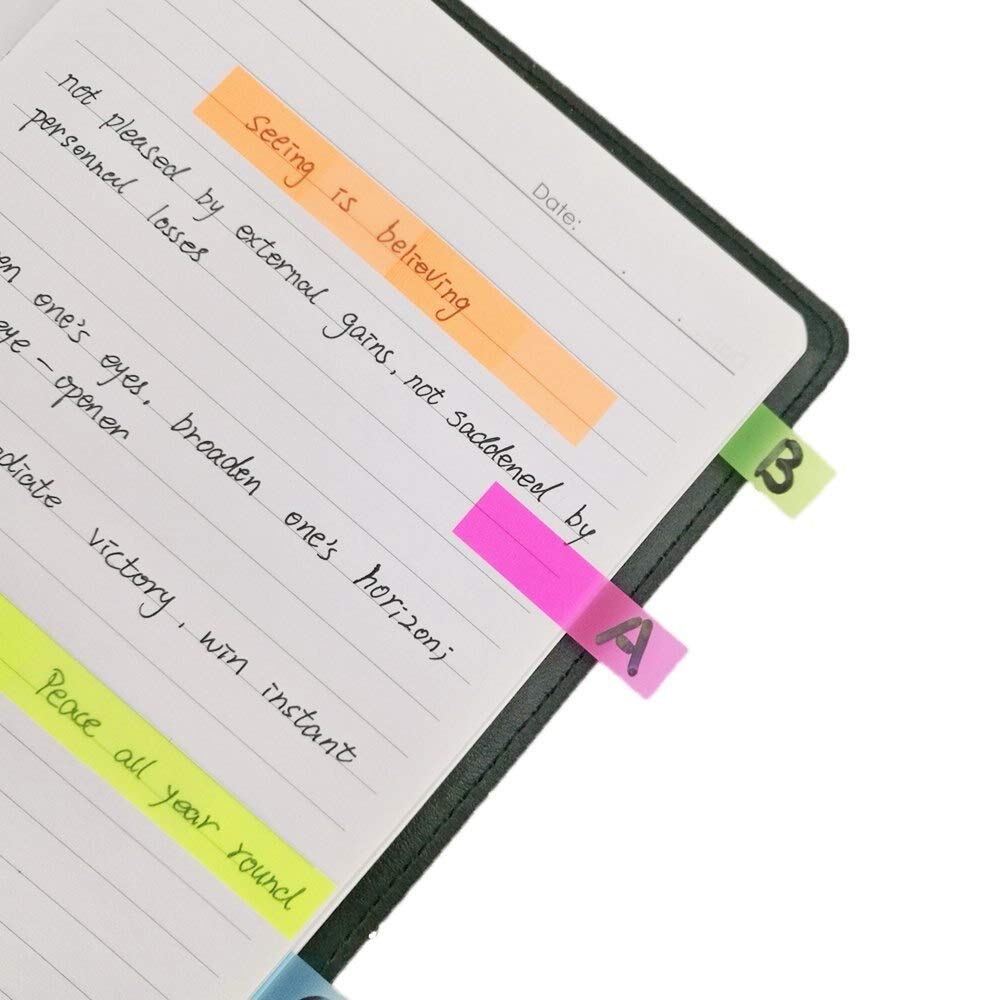 Date:
seeing is believing
not pleased by external gains, not saddened by
personnal losses
one's eyes, broaden one's horizon;
eye-opener
victory, win instant
Peace all year round
B
A